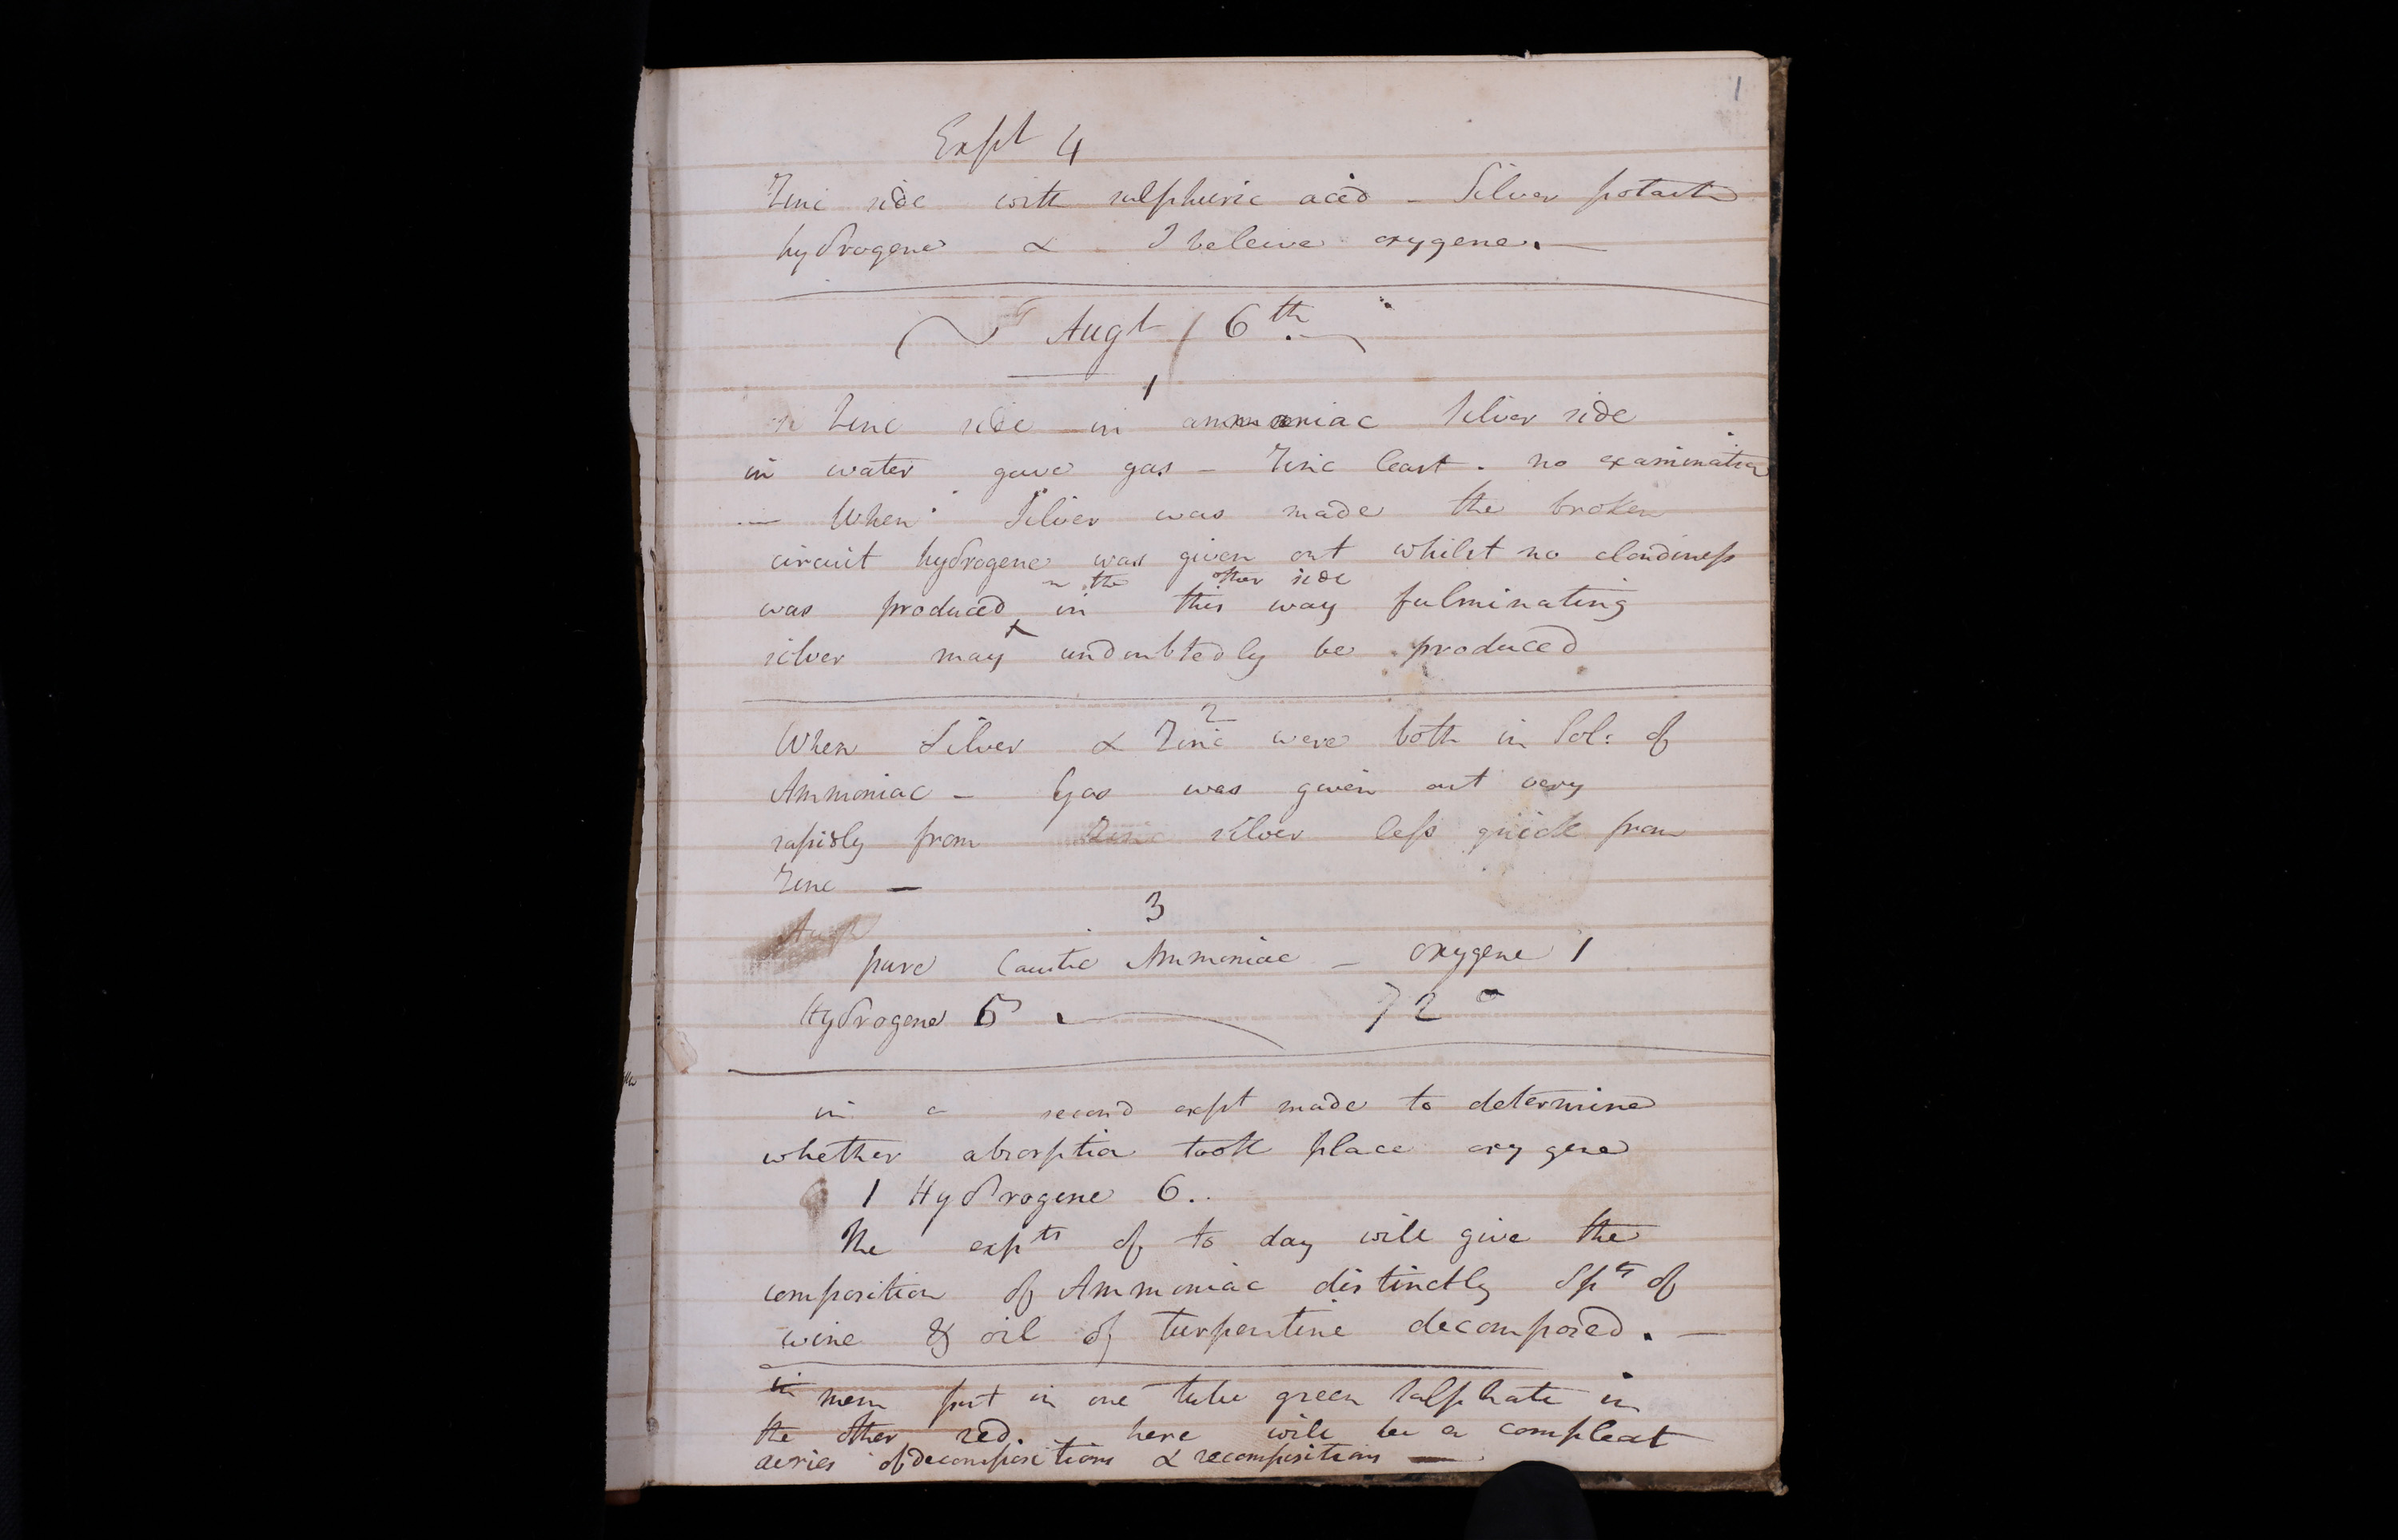 1
Expt 4
Zinc side with sulphuric acid - Silver potash
hydrogene & I beleive oxygene. —
Augt / 6th.
1
Zinc side in ammoniac Silver side
in water gave gas - Zinc least. no examination
— When Silver was made the broken
circuit hydrogene was given out whilst no cloudiness
on the other side
was produced in this way fulminating
silver may undoubtedly be produced
2
When Silver & Zinc were both in Sol: of
Ammoniac - Gas was given out very
rapidly from Zinc silver less quick from
Zinc —
3
Augt
pure Caustic Ammoniac - oxygene 1
Hydrogene 5. 72°
in a second expt made to determine
whether absorption took place oxygene
1 Hydrogene 6..
The expts of to day will give the
composition of Ammoniac distinctly Spts of
wine & oil of turpentine decomposed. —
in mem put in one tube green sulphate in
the other red. here will be a compleat
series of decompositions & recompositions —